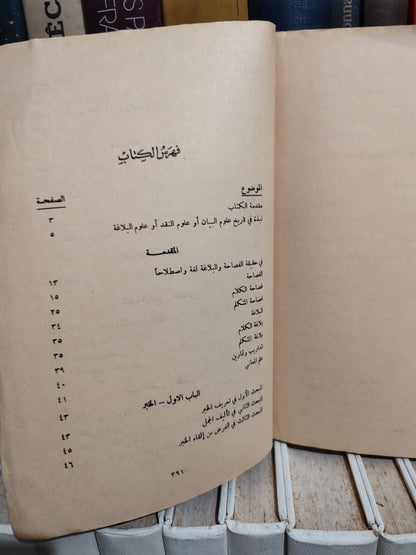 ÉC
SPA
FRA
onna
فهرس الكتاب
الموضوع الصفحة
مقدمة الكتاب ٣
نبذة في تاريخ علوم البيان أو علوم النقد أو علوم البلاغة ٥
المقدمة
في حقيقة الفصاحة والبلاغة لغة واصطلاحاً
الفصاحة ١٣
فصاحة الكلام ١٥
فصاحة المتكلم ٢٥
البلاغة ٣٤
بلاغة الكلام ٣٥
بلاغة المتكلم ٣٥
وتمارين ٣٩
علم المعاني ٤٠
٤١
الباب الاول – الخبر ٤٣
المبحث الأول في تعريف الخبر ٤٣
المبحث الثاني في تأليف الجمل ٤٥
المبحث الثالث في الغرض من إلقاء الخبر ٤٦
٣٩١